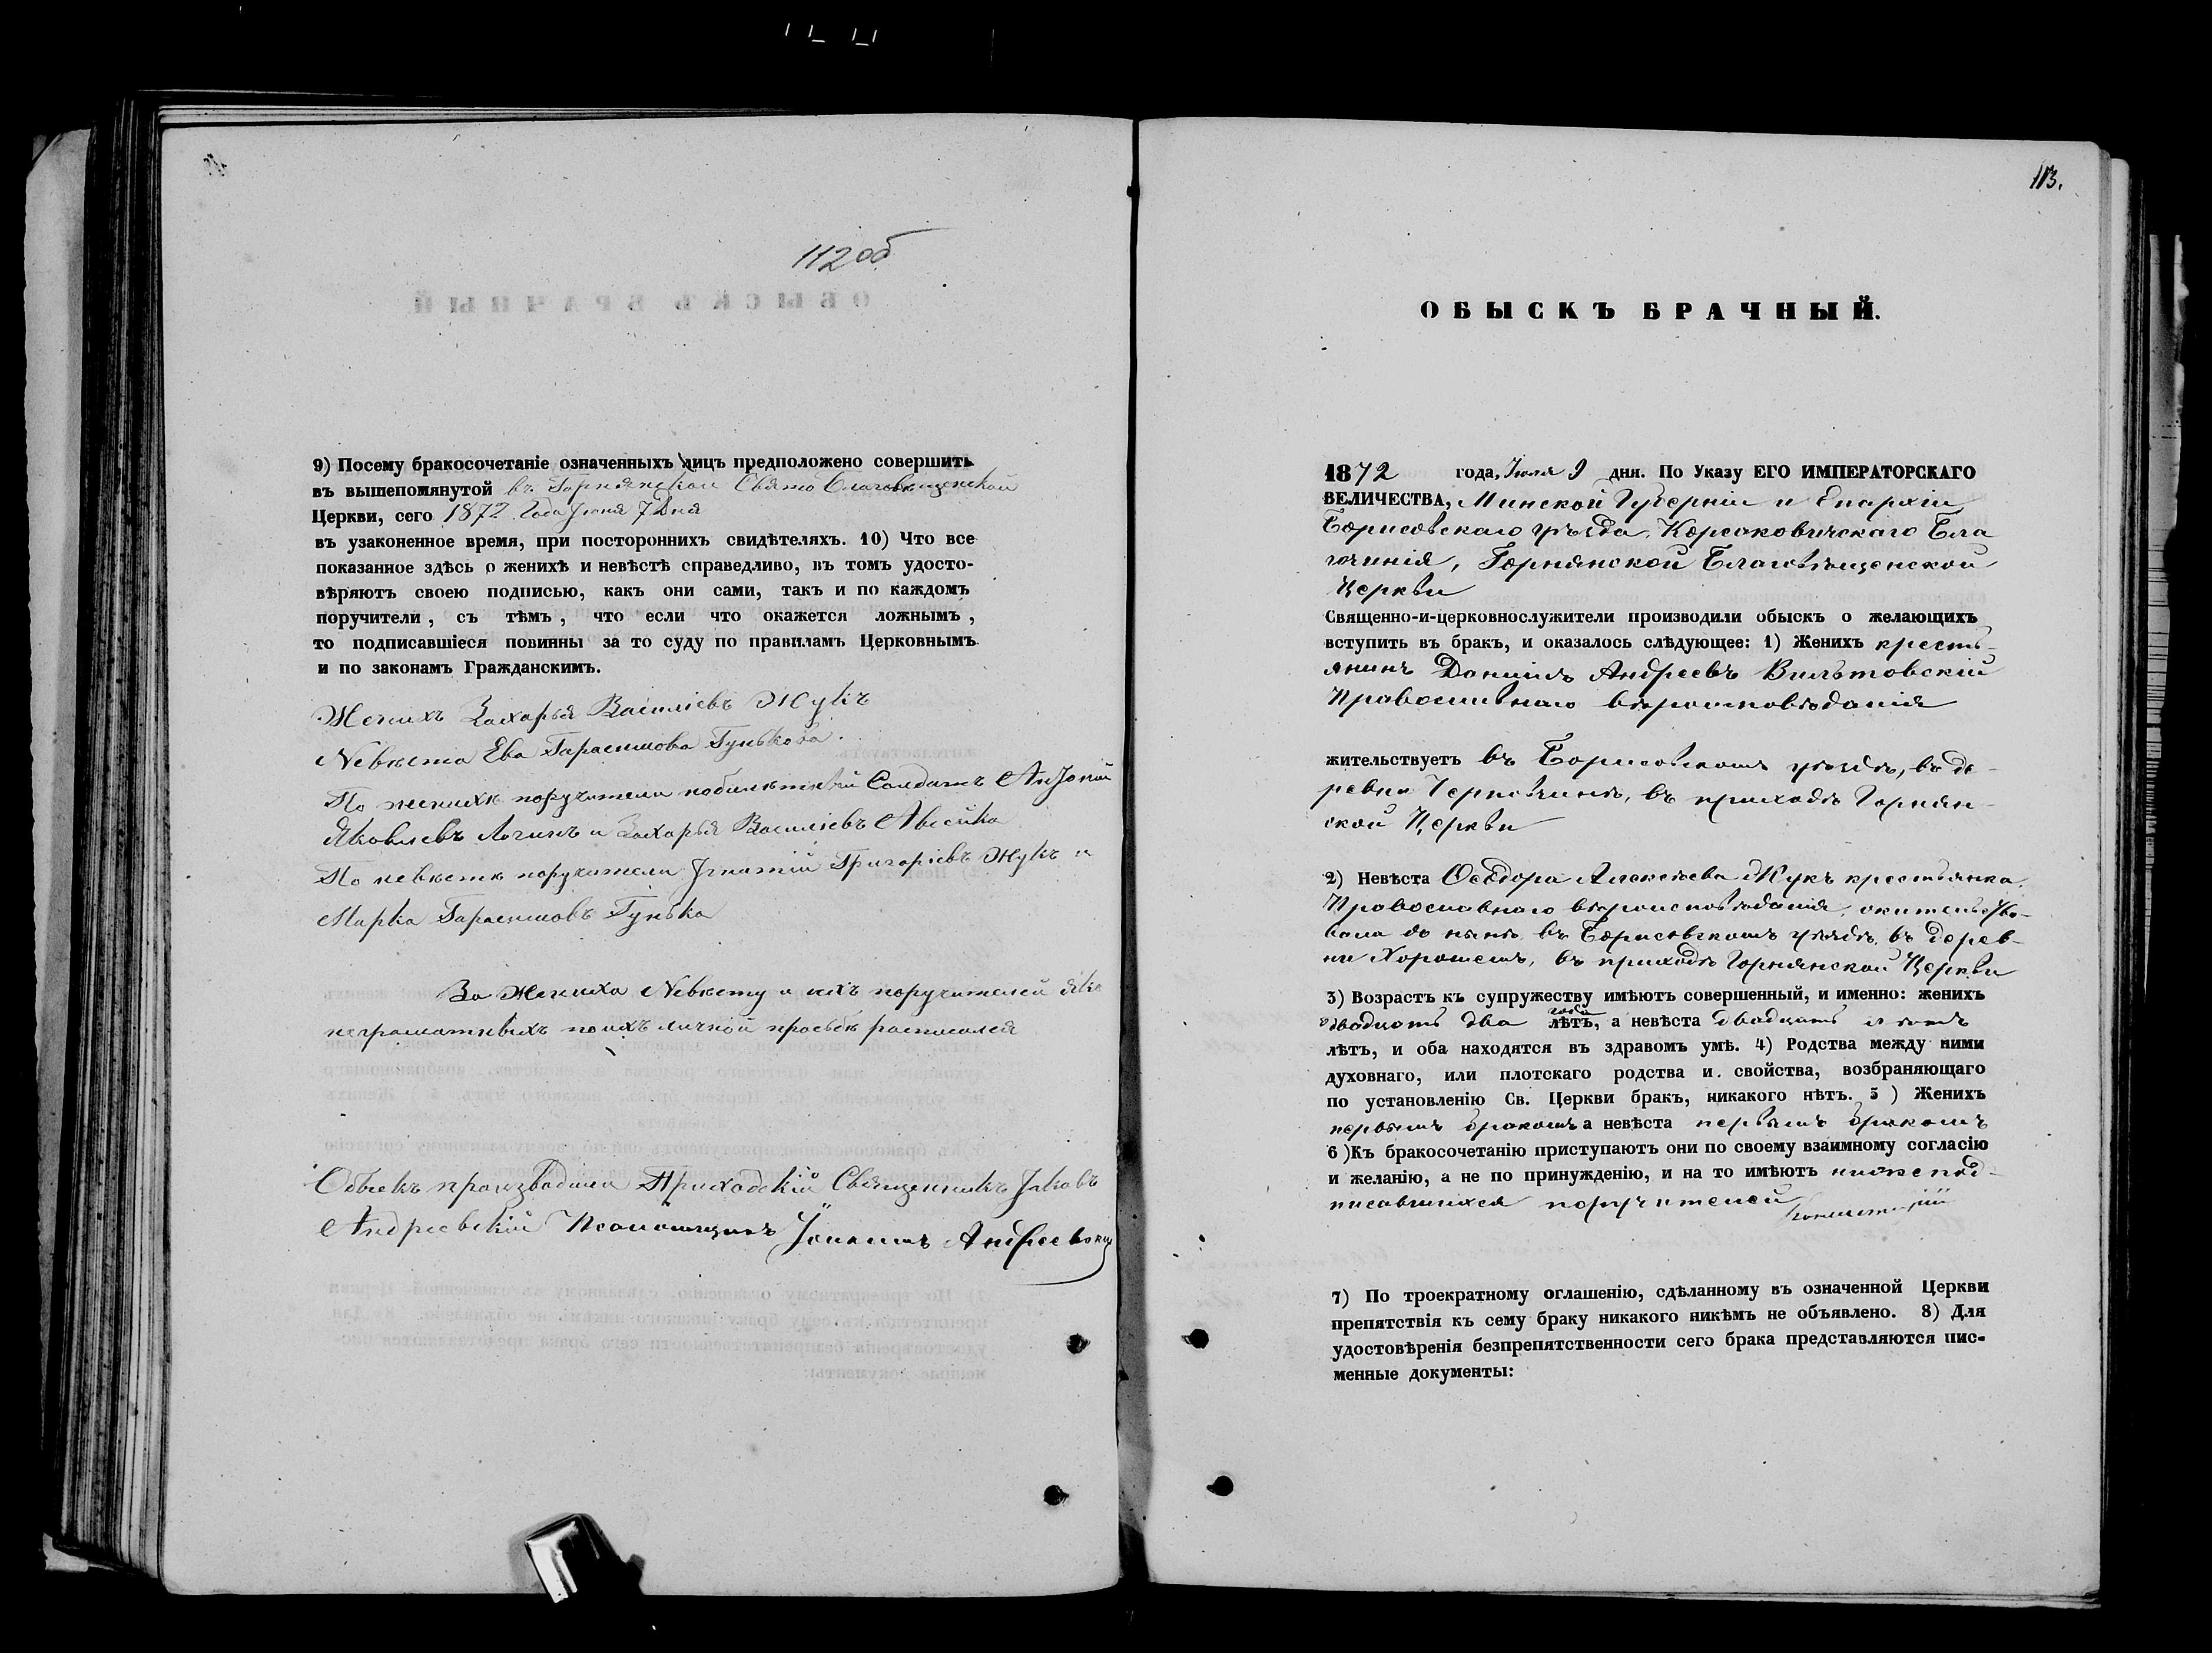 112 об
9) Посему бракосочетаніе означенныхъ лицъ предположено совершить
въ вышепомянутой въ Горнянской Свято Благовѣщенской
Церкви, сего 1872 Года Іюня 7 Дня
въ узаконенное время, при постороннихъ свидѣтеляхъ. 10) Что все
показанное здѣсь о женихѣ и невѣстѣ справедливо, въ томъ удосто-
вѣряютъ своею подписью, какъ они сами, такъ и по каждомъ
поручители, съ тѣмъ, что если что окажется ложнымъ,
то подписавшіеся повинны за то суду по правиламъ Церковнымъ
и по законамъ Гражданскимъ.
Женихъ Захарья Василіевъ Жукъ
Невѣста Ева Гарасимова Гунькова.
По женихѣ поручители Солдатъ Антоній
Яковлевъ Логинъ и Захарья Василіевъ Авсейка
По невѣстѣ поручители Игнатій Григоріевъ Жукъ и
Марка Гарасимовъ Гунька
За Жениха Невѣсту и ихъ поручителей яко
неграматныхъ по ихъ личной просьбѣ росписался
Обыскъ производили Приходскій Священникъ Іаковъ
Андреевскій Псаломщикъ Іоаннъ Андреевскій
113.
ОБЫСКЪ БРАЧНЫЙ.
1872 года, Іюля 9 дня. По Указу ЕГО ИМПЕРАТОРСКАГО
ВЕЛИЧЕСТВА, Минской Губерніи и Епархіи
Борисовскаго уѣзда, Корсаковичскаго Бла
гочинія, Горнянской Благовѣщенской
Церкви
Священно-и-церковнослужители производили обыскъ о желающихъ
вступить въ бракъ, и оказалось слѣдующее: 1) Женихъ кресть-
янинъ Даніилъ Андреевъ Вильтовскій
Православнаго вѣроисповѣданія
жительствуетъ въ Борисовскомъ уѣздѣ, въ де-
ревни въ приходѣ Горнян-
ской Церкви
2) Невѣста Ѳеодора Алексѣева Жукъ крестьянка,
Православнаго вѣроисповѣданія, жительство-
вала до нынѣ въ Борисовскомъ уѣздѣ, въ дерев-
ни Хорошемъ, въ приходѣ Горнянской Церкви
3) Возрастъ къ супружеству имѣютъ совершенный, и именно: женихъ
двадцать два года лѣтъ, а невѣста двадцать
лѣтъ, и оба находятся въ здравомъ умѣ. 4) Родства между ними
духовнаго, или плотскаго родства и. свойства, возбраняющаго
по установленію Св. Церкви бракъ, никакого нѣтъ. 5 ) Женихъ
первымъ бракомъ а невѣста первымъ бракомъ
6 )Къ бракосочетанію приступаютъ они по своему взаимному согласію
и желанію, а не по принужденію, и на то имѣютъ нижепод-
писавшихся поручителей
7) По троекратному оглашенію, сдѣланному въ означенной Церкви
препятствія къ сему браку никакого никѣмъ не объявлено. 8) Для
удостовѣренія безпрепятственности сего брака представляются пис-
менные документы: